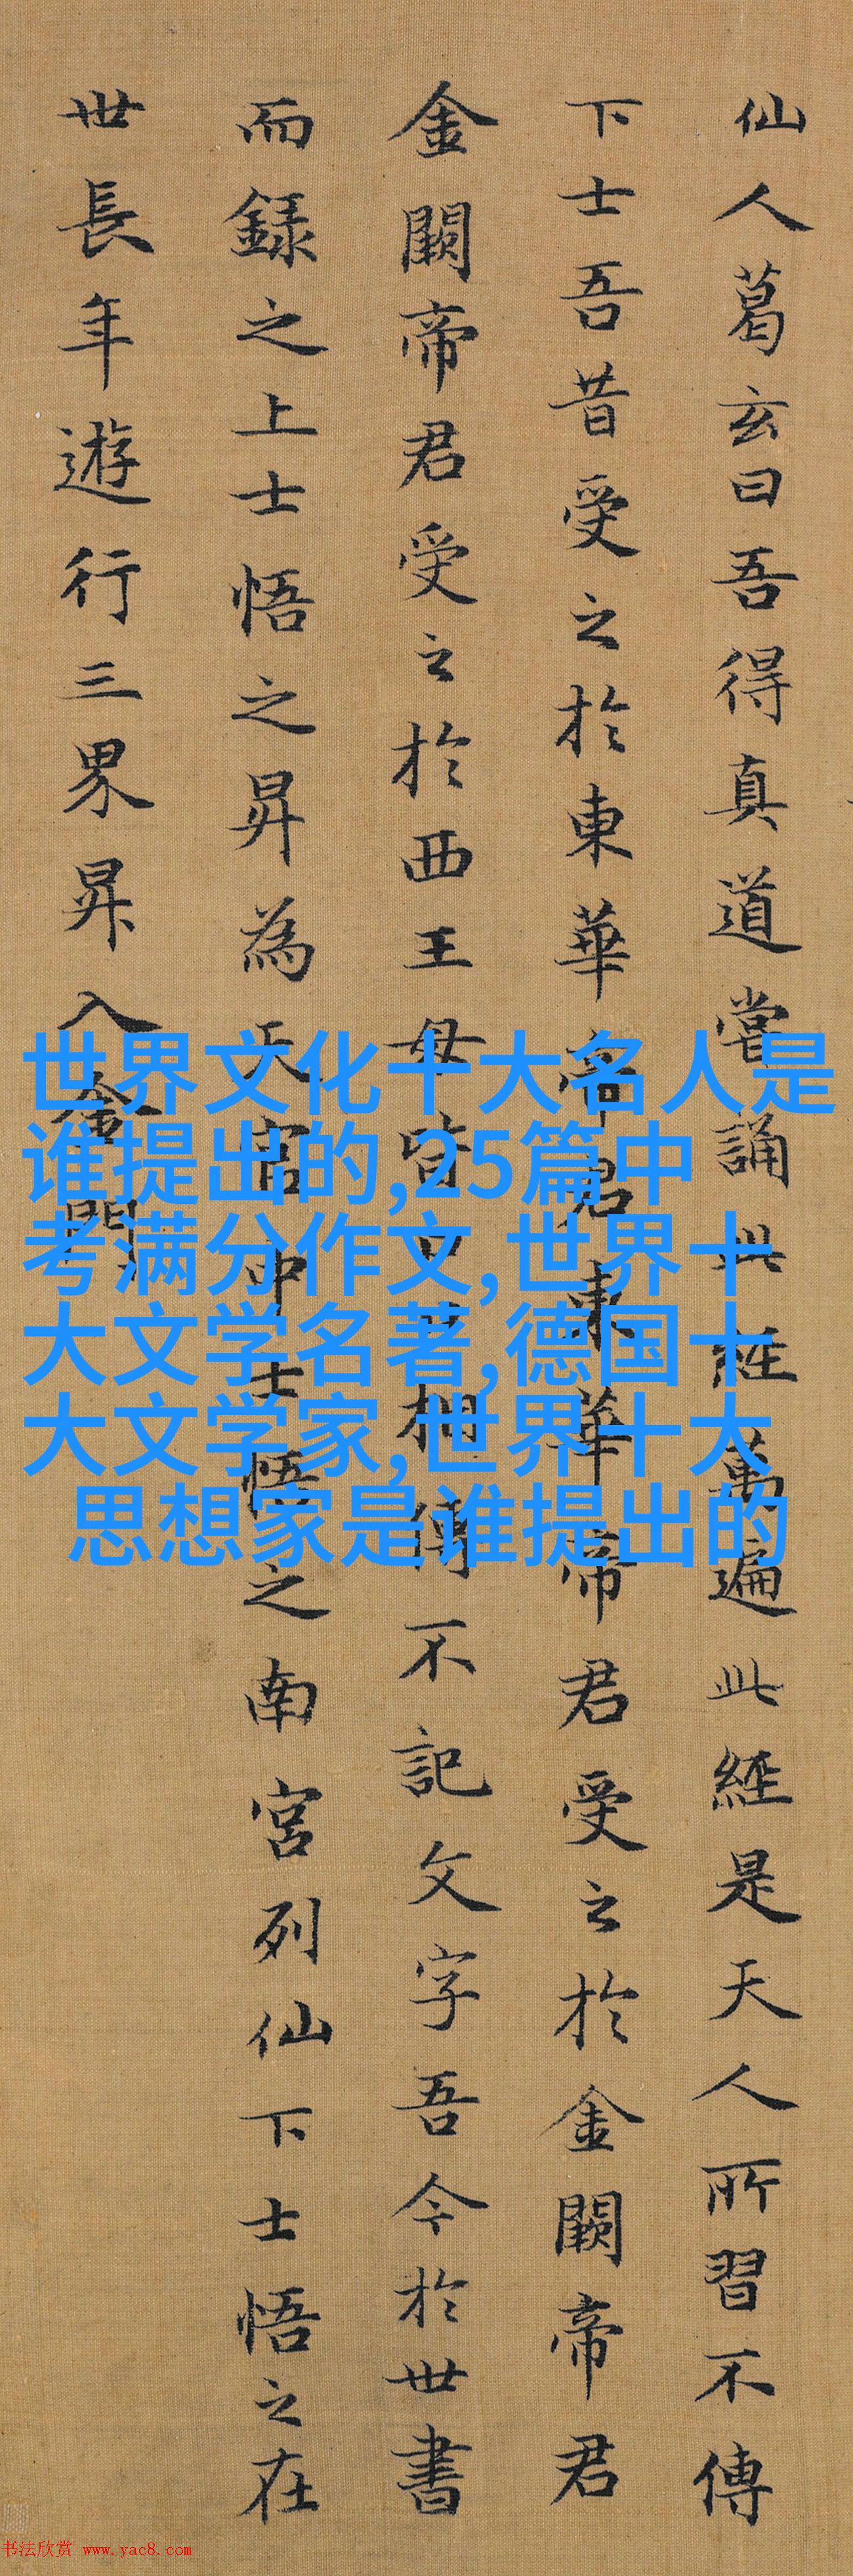 仙人葛玄曰吾得真道當誦此經萬遍此經是天人所習不傳
下士吾昔受之於東華帝君東華帝君受之於金闕帝君
金闕帝君受之於西王母皆口口相傳不記文字吾今於世書
而録之上士悟之昇為天官中士悟之南宮列仙下士悟之在
世長年遊行三界昇入金門
世界文化十大名人是
谁提出的,25篇中
考满分作文,世界十
大文学名著,德国十
大文学家,世界十大
思想家是谁提出的
书法欣赏 www.yac8.com